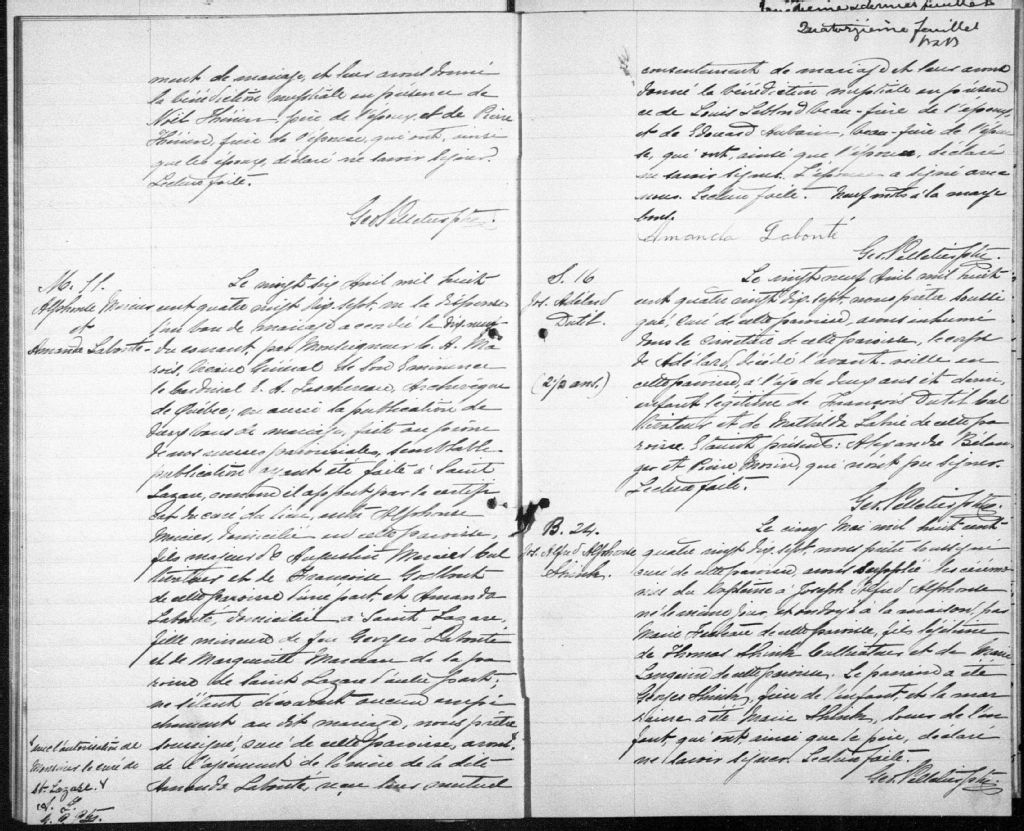 Quatorzième feuillet
ment de mariage, et leur avons donné
la bénédiction nuptiale en présence de
Noël père de l'époux, et de Pierre
frère de l'épouse, qui ont, ainsi
que les époux, déclaré ne savoir signer.
Lecture faite.
Geo. Pelletier ptre.
M. 11.
Alphonse Mercier
et
Amanda Labonté.
Le vingt six Avril mil huit
cent quatre vingt dix-sept, vu la dispense
d'un ban de mariage accordée le dix-neuf
du courant, par Monseigneur C. A. Ma-
rois, Vicaire Général de Son Eminence
le Cardinal E. A. Taschereau, Archevêque
de Québec; vu aussi la publication de
deux bans de mariage, faite au prône
de nos messes paroissiales, semblable
publication ayant été faite à Saint
Lazare, comme il appert par le certifi-
cat du curé du lieu, entre Alphonse
Mercier, domicilié en cette paroisse,
fils majeur d'Augustin Mercier Cul-
tivateur et de Françoise Godbout
de cette paroisse d'une part, et Amanda
Labonté, domiciliée à Saint Lazare,
fille mineure de feu Georges Labonté
et de Marguerite de la pa-
roisse de Saint Lazare d'autre part;
ne s'étant découvert aucun empê-
chement au dit mariage, nous prêtre
soussigné, curé de cette paroisse, avons
de l'agrément de la mère de la dite
Amanda Labonté, reçu leur mutuel
avec l'autorisation de
Monsieur le curé de
St. Lazare.
A. L.
G. P. Ptre.
consentement de mariage et leur avons
donné la bénédiction nuptiale en présen-
ce de Louis beau-frère de l'époux,
et de Edouard Aubin, beau-frère de l'épou-
se, qui ont, ainsi que l'époux, déclaré
ne savoir signer. L'épouse a signé avec
nous. Lecture faite. Neuf mots à la marge
bons.
Amanda Labonté
Geo. Pelletier ptre.
S. 16
Jos. Adélard
Dutil.
(2 1/2 ans.)
Le vingt neuf Avril mil huit
cent quatre vingt dix-sept, nous prêtre soussi-
gné, curé de cette paroisse, avons inhumé
dans le cimetière de cette paroisse, le corps
de Adélard, décédé l'avant veille en
cette paroisse, à l'âge de deux ans et demi,
enfant légitime de François Dutil Cul-
tivateur et de Mathilda Labrie de cette pa-
roisse. Etaient présents: Alexandre Bélan-
ger et Pierre Morin, qui n'ont pu signer.
Lecture faite.
Geo. Pelletier ptre.
B. 24.
Jos. Alfred Alphonse
Le cinq Mai mil huit cent
quatre vingt dix-sept, nous prêtre soussigné
curé de cette paroisse, avons suppléé les cérémo-
nies du baptême à Joseph Alfred Alphonse
né le même jour, et ondoyé à la maison par
Marie de cette paroisse, fils légitime
de Thomas Cultivateur et de Marie
de cette paroisse. Le parrain a été
Georges frère de l'enfant, et la mar-
raine a été Marie soeur de l'en-
fant, qui ont, ainsi que le père, déclaré
ne savoir signer. Lecture faite.
Geo. Pelletier ptre.